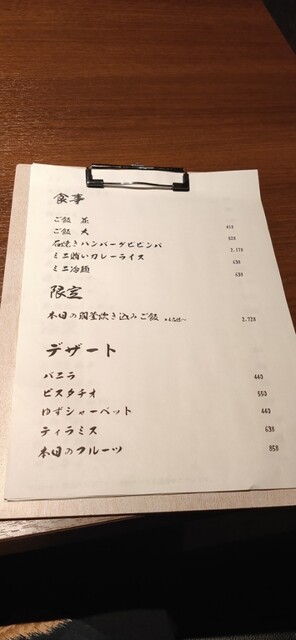 食事
ご飯 並 418
ご飯 大 528
石焼きハンバーグビビンバ 2.178
ミニ賄いカレーライス 638
ミニ冷麺 638
限定
本日の羽釜炊き込みご飯 ※4名様〜 2.728
デザート
バニラ 440
ピスタチオ 550
ゆずシャーベット 440
ティラミス 638
本日のフルーツ 858